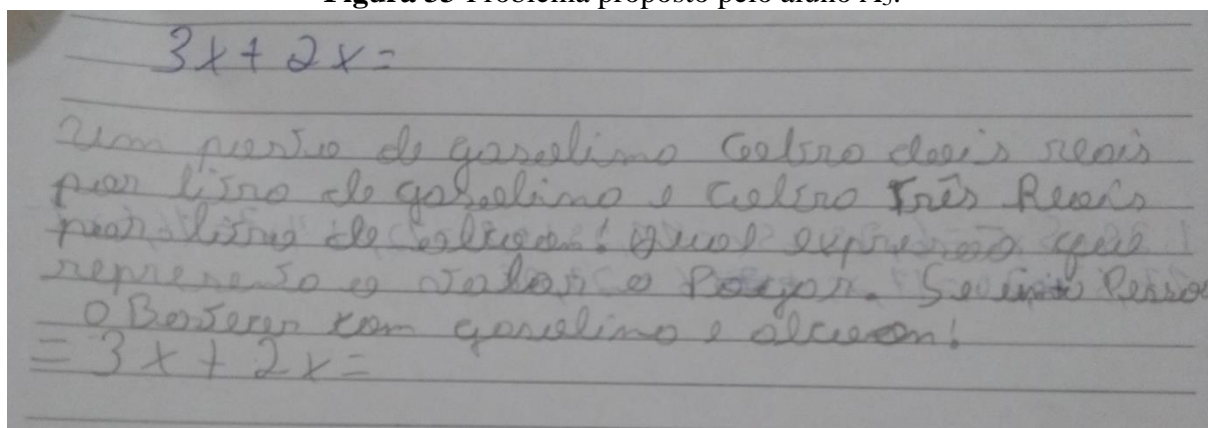 Figura 35 Problema proposto pelo aluno A₅.
3x + 2x =
Um posto de gasolina cobra dois reais
por litro de gasolina e cobra Três Reais
por litro de ! qual expressão que
representa o valor a Pagar. Se Pessoa
com gasolina e alcuoon!
= 3x + 2x =